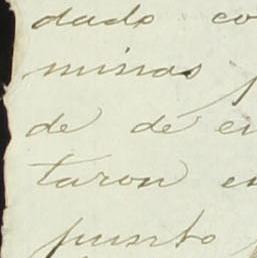 dado co
minas
de de en
taron en
punto